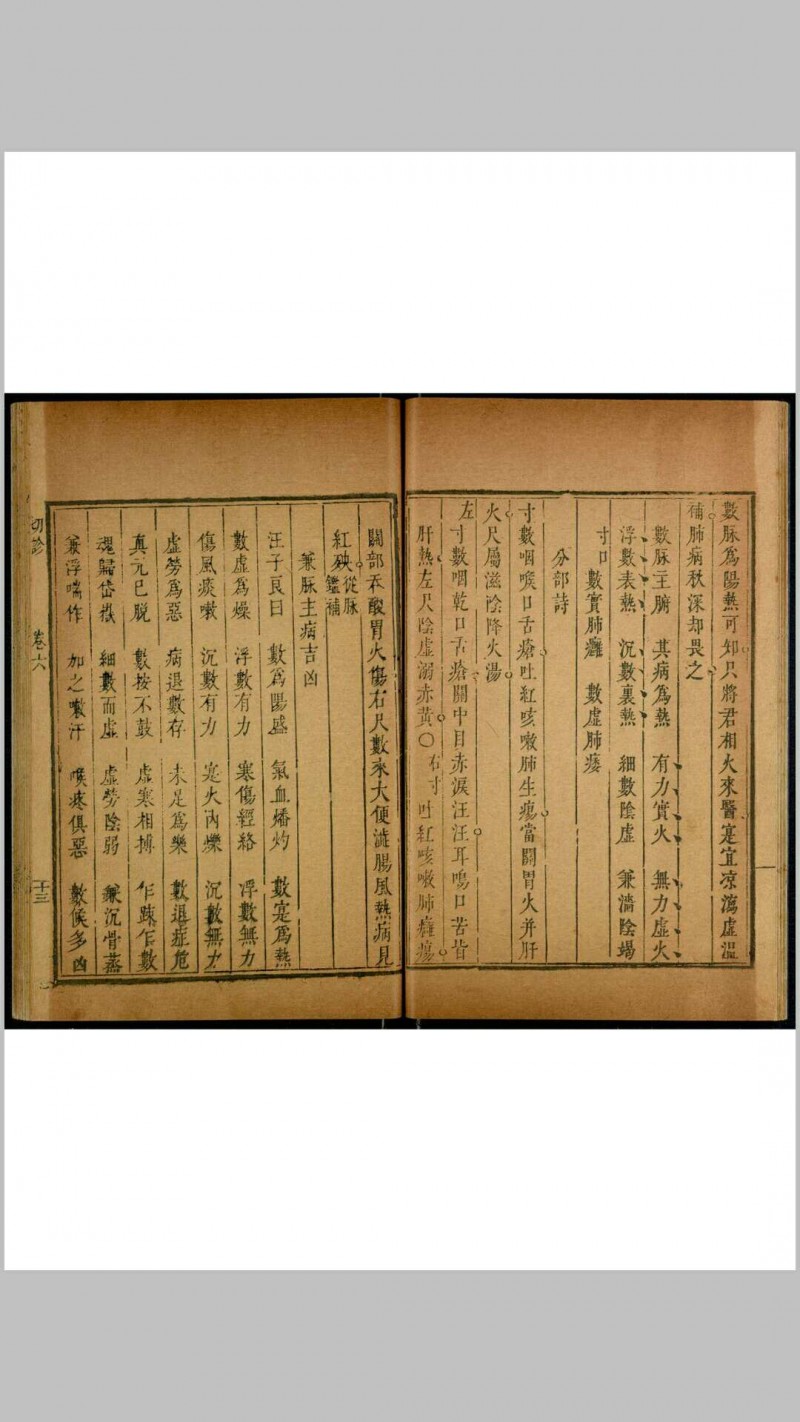 數脉為陽熱可知只將君相火來醫寔宜凉瀉虛溫
補肺病秋深却畏之
數脉主腑　其病為熱　有力實火　無力虛火
浮數表熱　沉數裏熱　細數陰虛　兼濇陰竭
寸口數實肺癰　數虛肺痿
分部詩
寸數咽喉口舌瘡吐紅咳嗽肺生瘍當關胃火并肝
火尺屬滋陰降火湯
左寸數咽乾口舌瘡關中目赤淚汪汪耳鳴口苦皆
肝熱左尺陰虛溺赤黃〇右寸吐紅咳嗽肺癰瘍
關部吞酸胃火傷右尺數來大便澁腸風熱病見
紅殃從脉鑑補
兼脉主病吉凶
汪子良曰　數為陽盛　氣血燔灼　數寔為熱
數虛為燥　浮數有力　寒傷經絡　浮數無力
傷風痰嗽　沉數有力　寔火內爍　沉數無力
虛勞為惡　病退數存　未足為樂　數退症危
真元已脫　數按不鼓　虛寒相搏　乍踈乍數
魂歸岱嶽　細數而虛　虛勞陰弱　兼沉骨蒸
兼浮喘作　加之嗽汗　喉疼俱惡　數候多凶
切診　卷六　十三